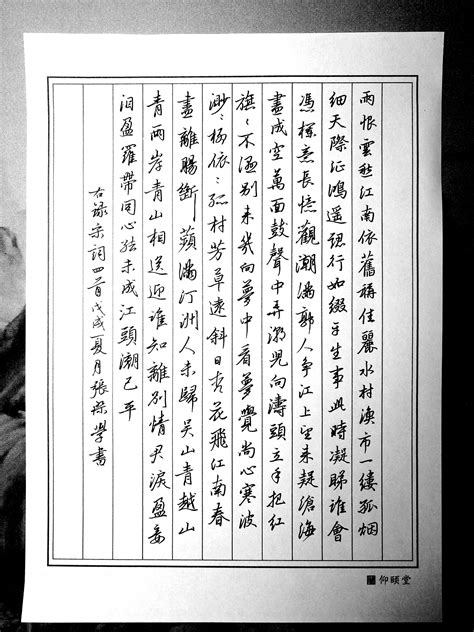 雨恨雲愁江南依舊稱佳麗水村漁市一縷孤烟
細天際征鴻遥認行如綴平生事此時凝睇誰會
憑欄意長憶觀潮滿郭人爭江上望來疑滄海
盡成空萬面鼓聲中弄潮兒向濤頭立手把紅
旗〻不濕別來幾向夢中看夢覺尚心寒波
渺〻柳依〻孤村芳草遠斜日杏花飛江南春
盡離腸斷蘋滿汀洲人未歸吳山青越山
青兩岸青山相送迎誰知離別情君淚盈妾
淚盈羅帶同心結未成江頭潮已平
右錄宋詞四首戊戌夏月張學書
仰頤堂